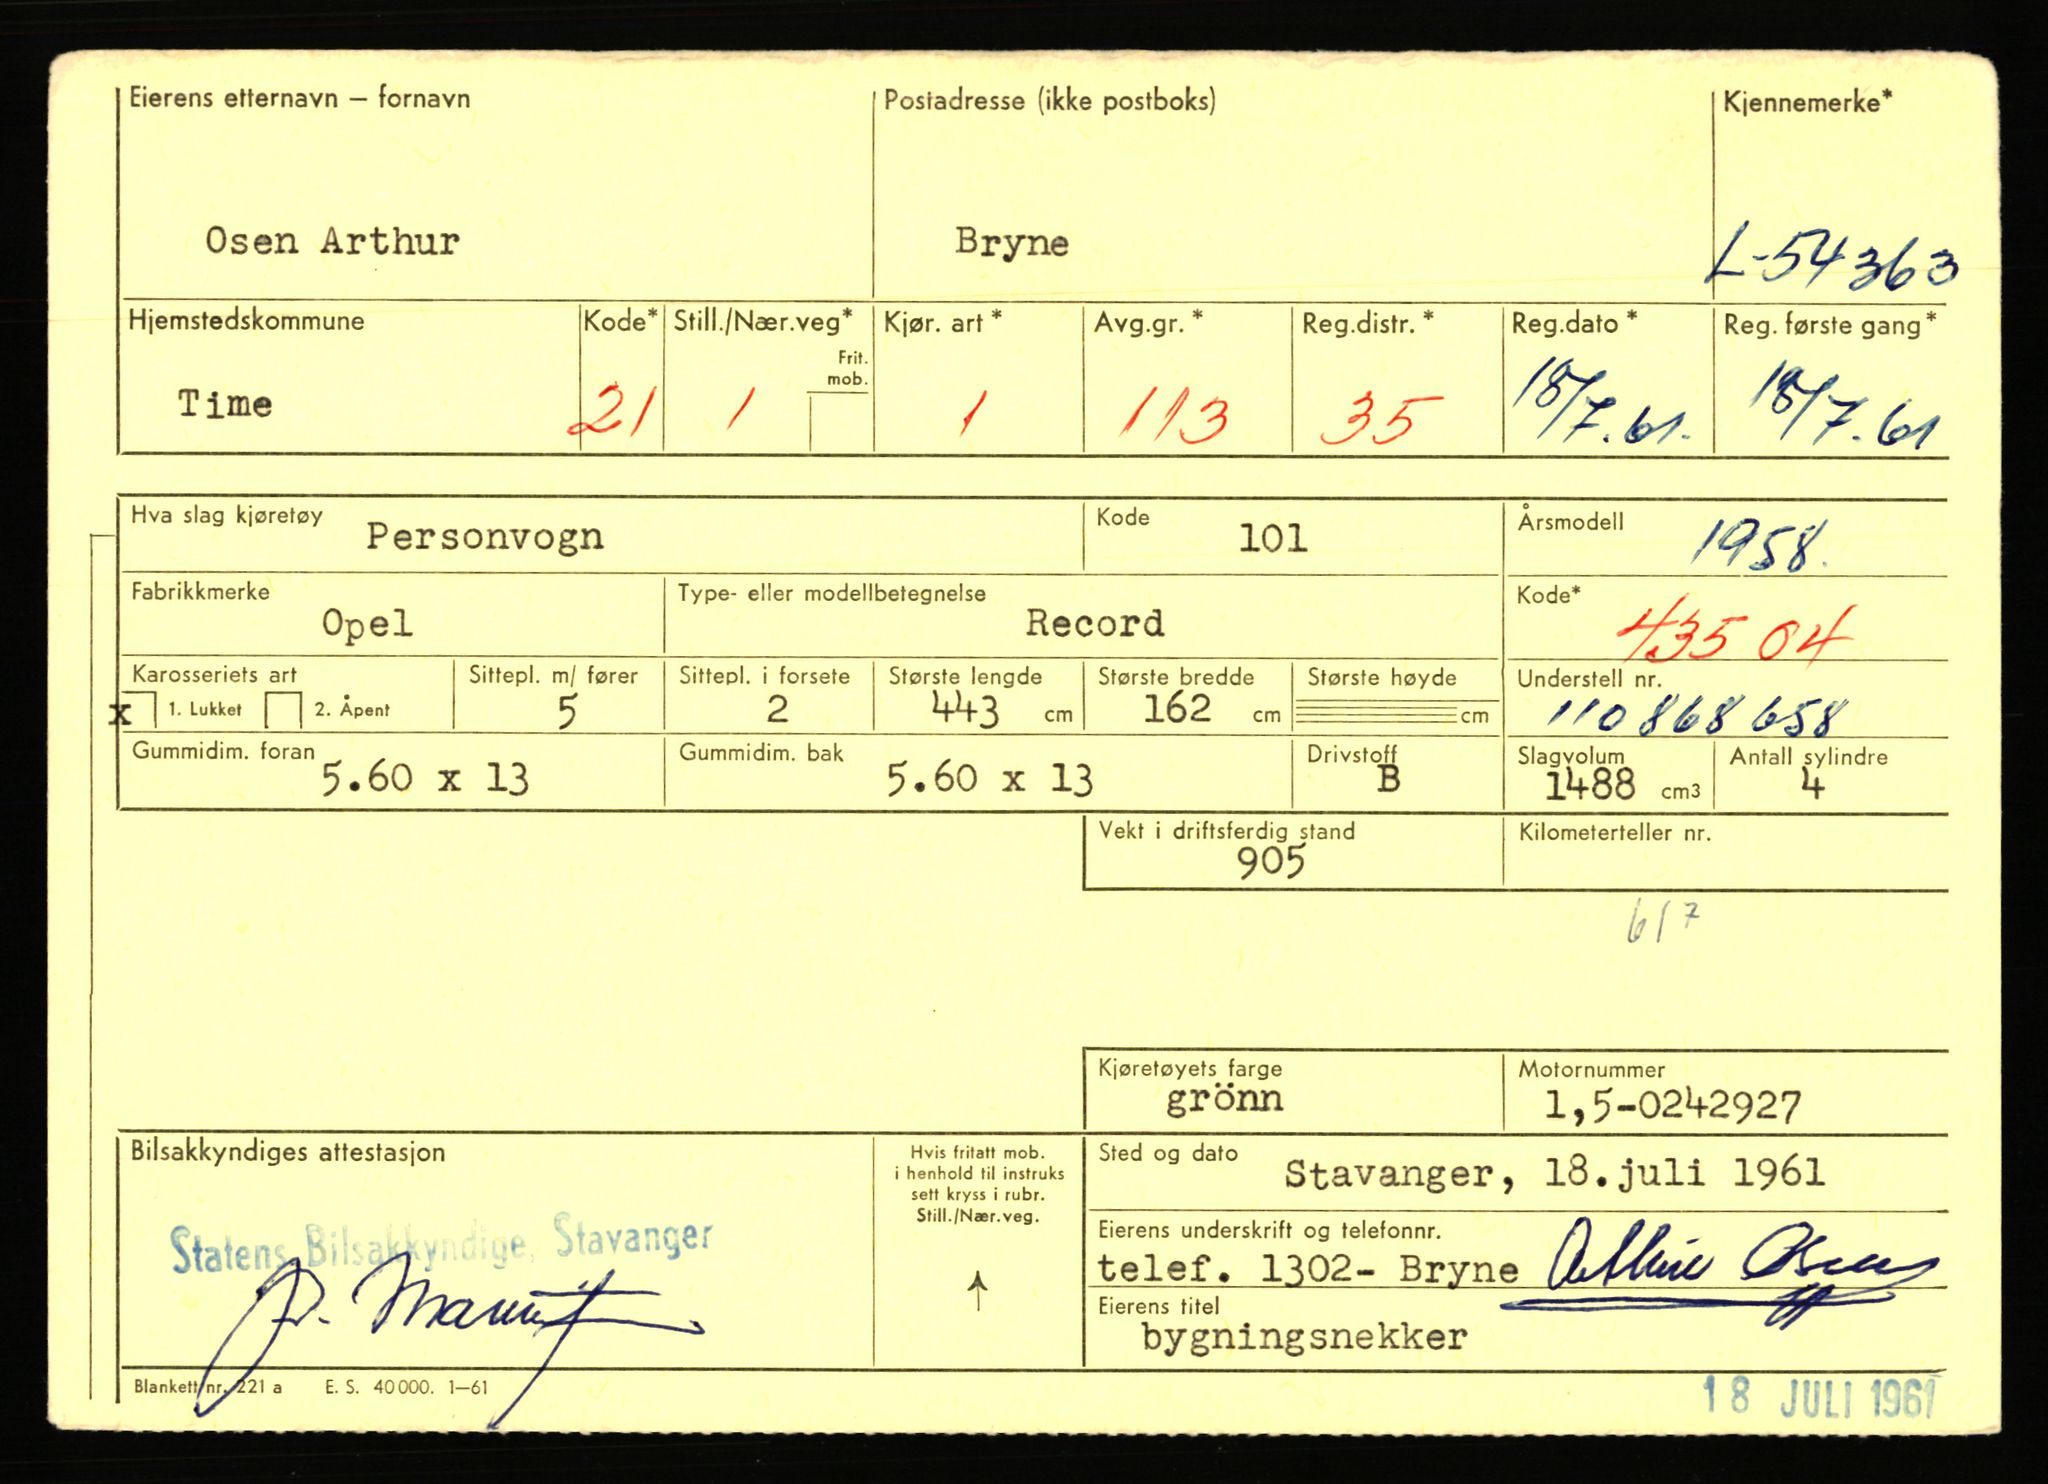 Eierens etternavn – fornavn Postadresse (ikke postboks) Kjennemerke*
Osen Arthur Bryne L-54363
Hjemstedskommune Kode* Still./Nær.veg* Kjør. art* Avg.gr.* Reg.distr.* Reg.dato* Reg. første gang*
Frit.
mob.
Time 21 1 1 113 35 18/7.61. 18/7.61
Hva slag kjøretøy Personvogn Kode 101 Årsmodell 1958.
Fabrikkmerke Type- eller modellbetegnelse Kode*
Opel Record 435 04
Karosseriets art Sittepl. m/ fører Sittepl. i forsete Største lengde Største bredde Største høyde Understell nr.
x 1. Lukket 2. Åpent 5 2 443 cm 162 cm cm 110868658
Gummidim. foran Gummidim. bak Drivstoff Slagvolum Antall sylindre
5.60 x 13 5.60 x 13 B 1488 cm3 4
Vekt i driftsferdig stand Kilometerteller nr.
905
6/7
Kjøretøyets farge Motornummer
grönn 1,5-0242927
Bilsakkyndiges attestasjon Hvis fritatt mob.
i henhold til instruks
sett kryss i rubr.
Still./Nær.veg.
Sted og dato Stavanger, 18.juli 1961
Statens Bilsakkyndige, Stavanger
Eierens underskrift og telefonnr.
telef. 1302- Bryne Arthur Osen
Eierens titel
bygningsnekker
Blankett nr. 221 a E. S. 40000. 1–61
18 JULI 1961